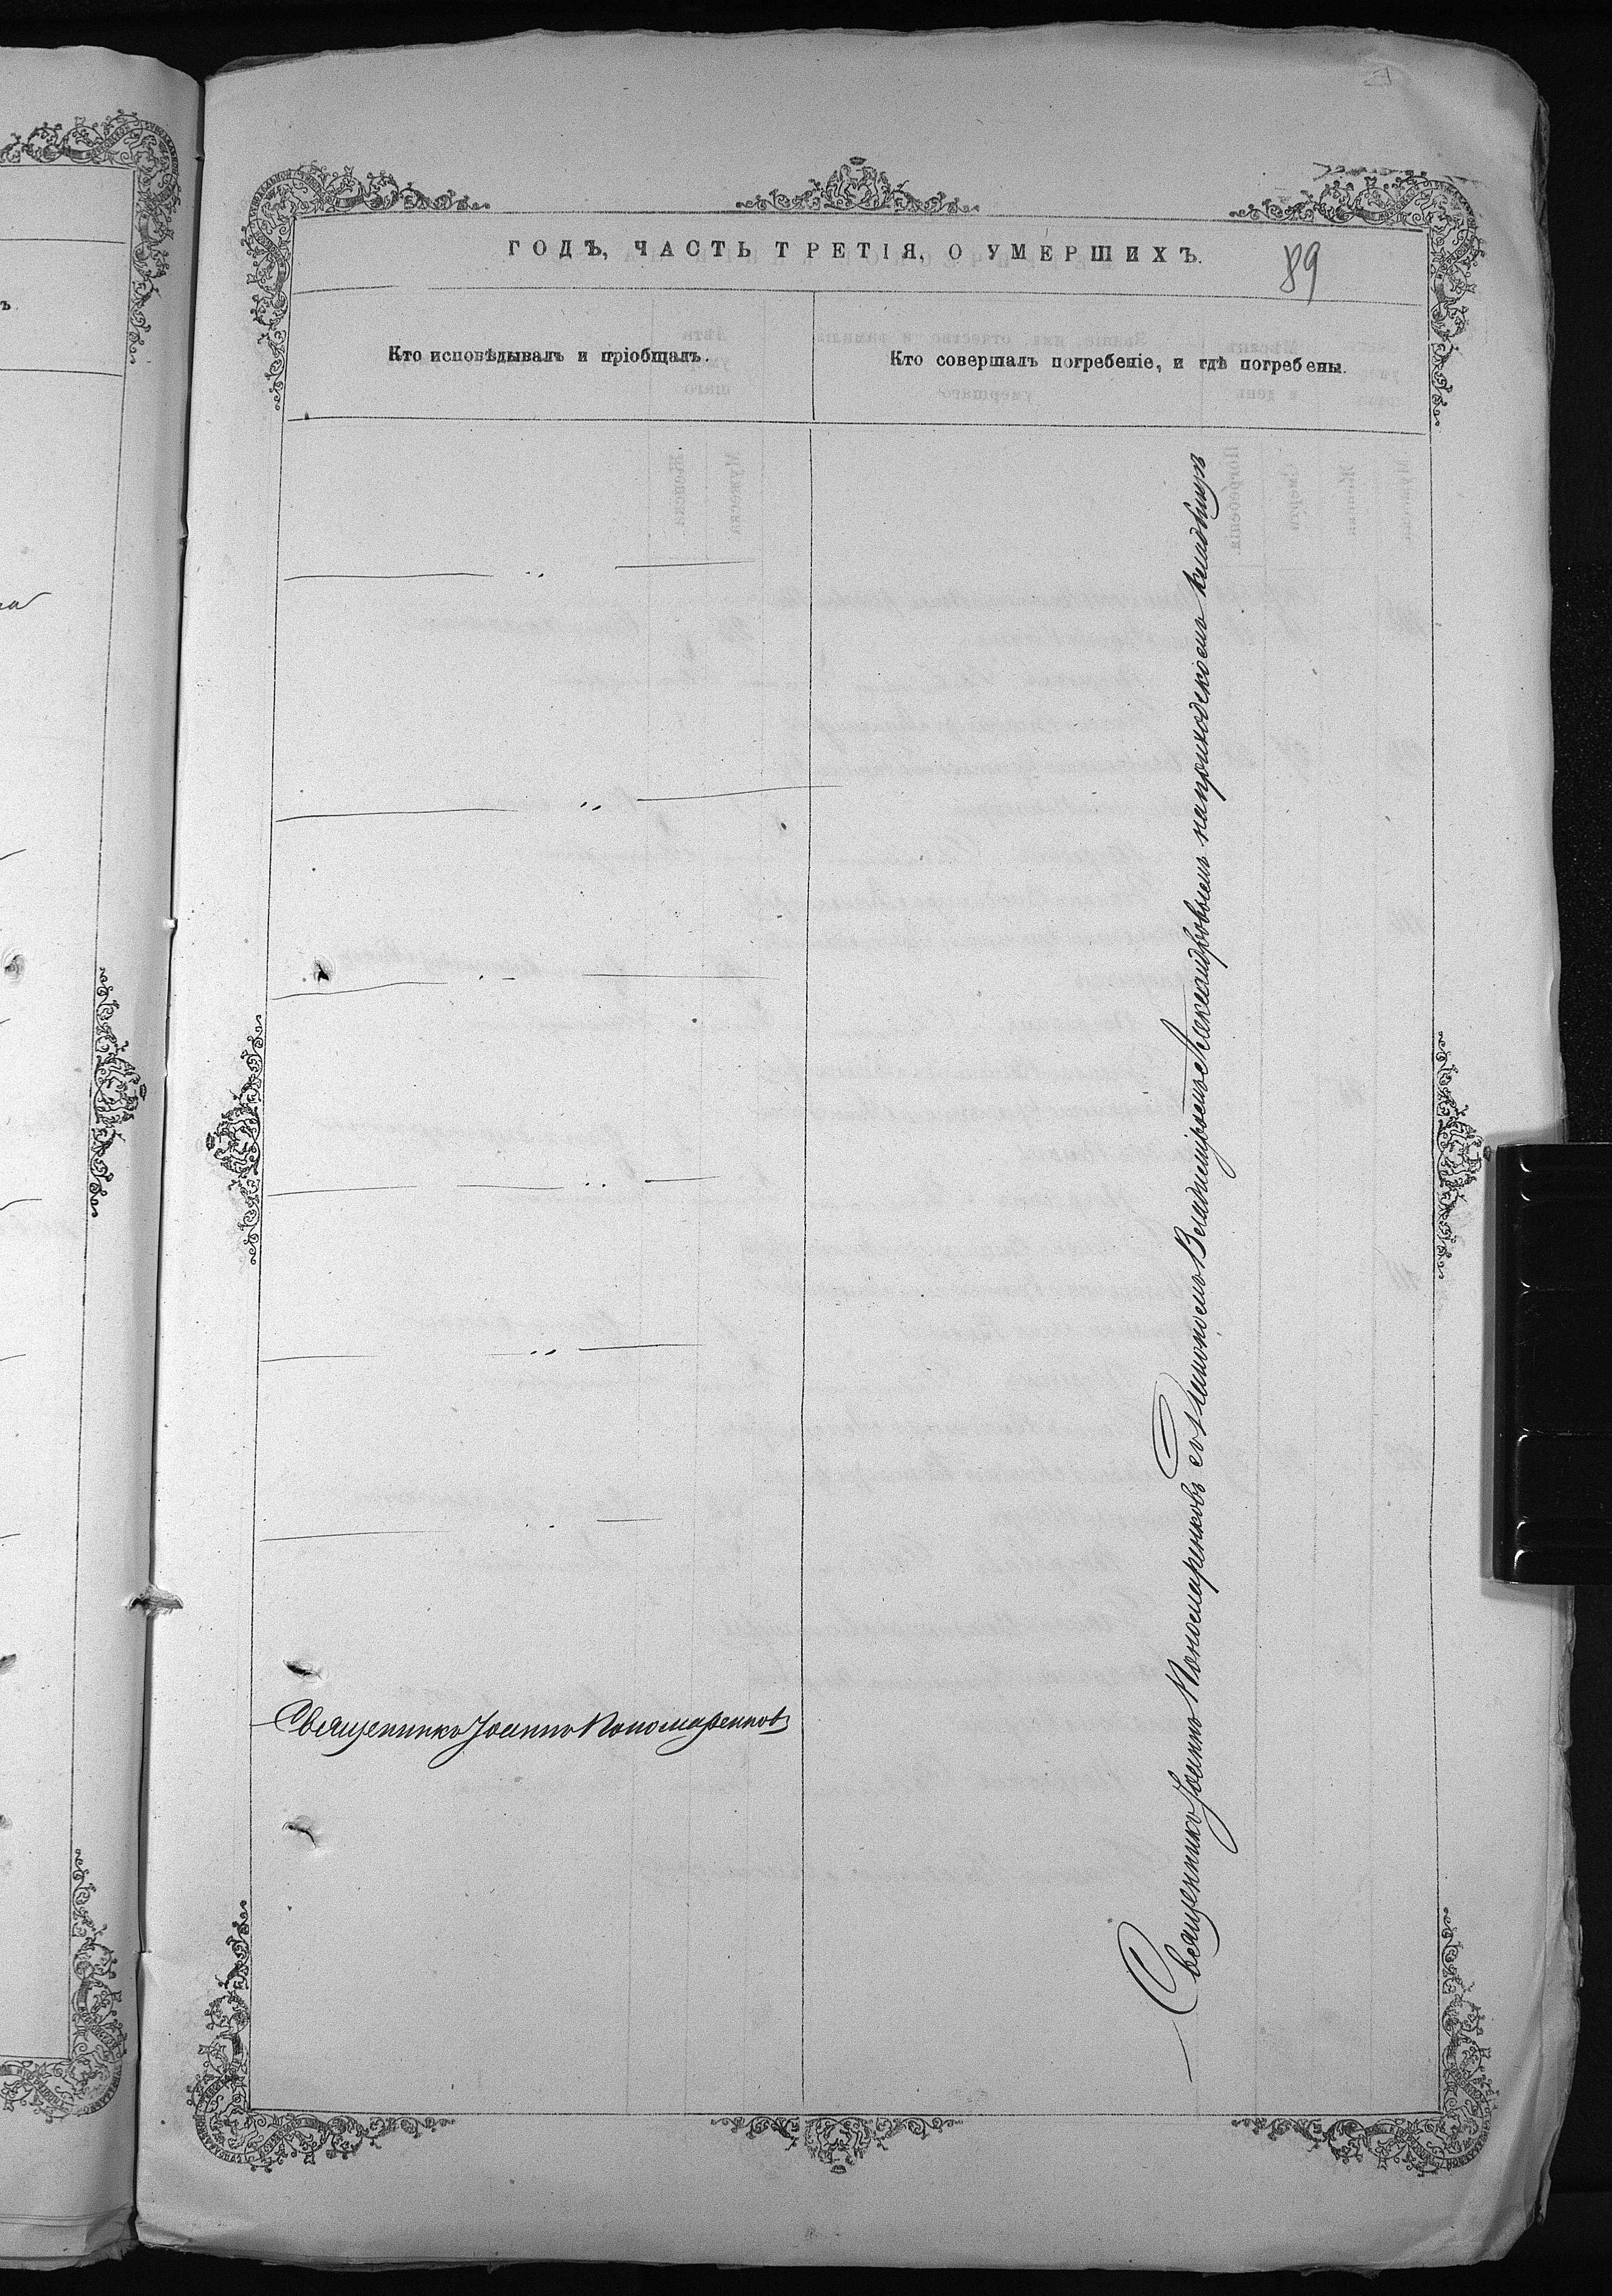 ГОДЪ, ЧАСТЬ ТРЕТІЯ, О УМЕРШИХЪ.
89
Кто исповѣдывалъ и пріобщалъ.
Кто совершалъ погребеніе, и гдѣ погребены.
Священникъ Іоаннъ Пономаренковъ
Священникъ Іоаннъ Пономаренковъ съ Діакономъ Владиміромъ Александровымъ на приходскомъ кладбищѣ